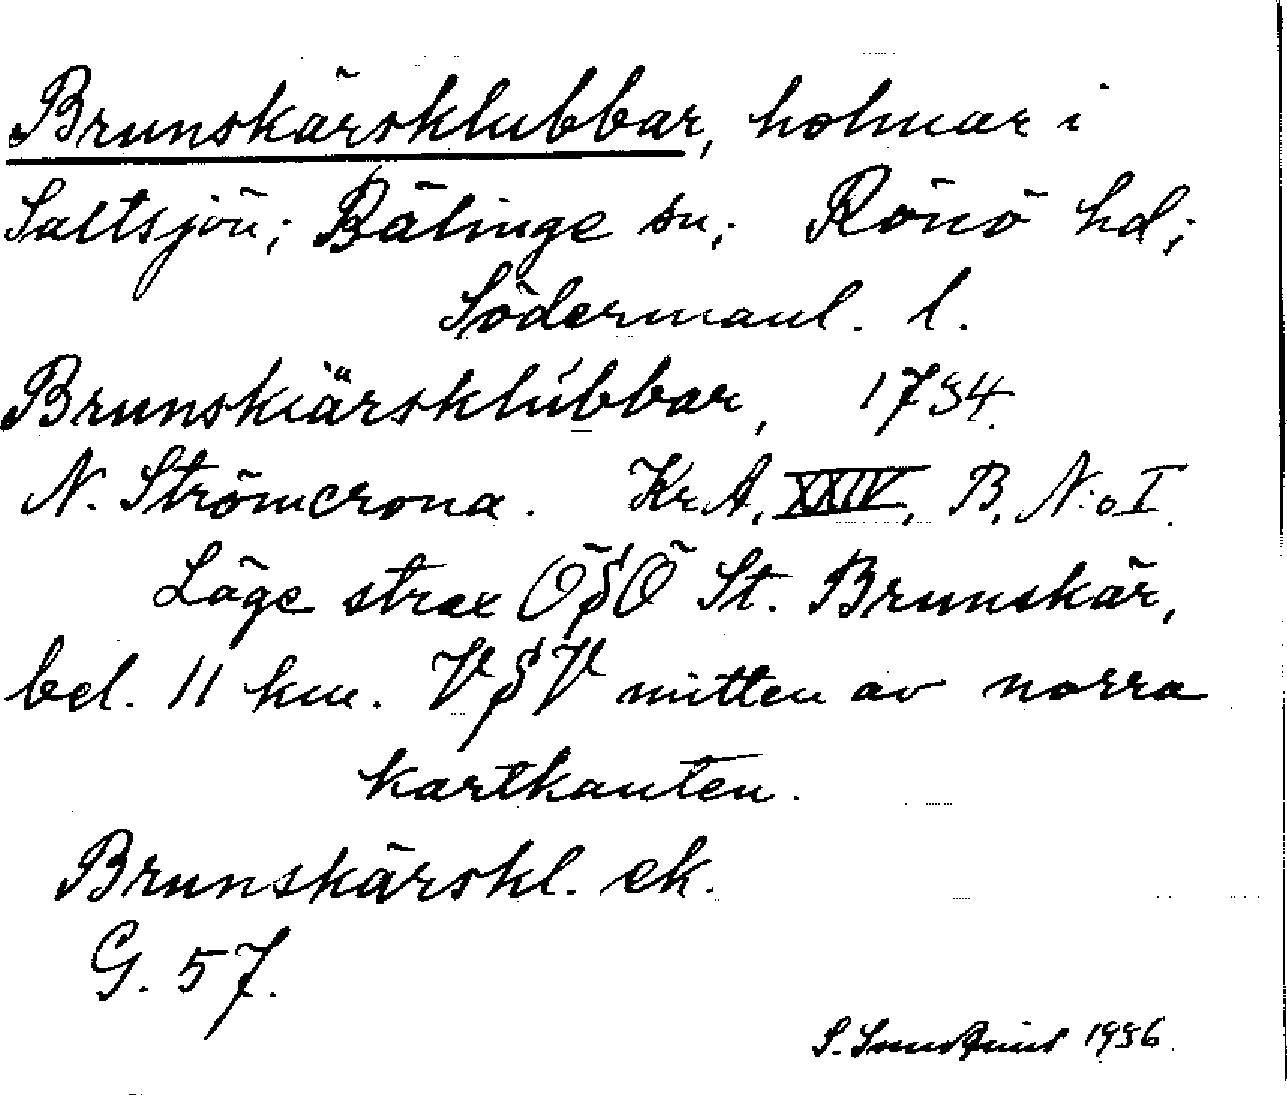 Brunskärsklubbar, holmar i
Saltsjön; Bälinge sn; Rönö hd;
Södermanl. l.
Brunskiärsklubbar, 1734.
N. Strömcrona. Kr. A, XXIV, B, N:o I.
Läge strax Ö§Ö St. Brunskär,
bel. 11 km. V§V mitten av norra
kartkanten.
Brunskärskl. ek.
G. 57.
S. 1936.